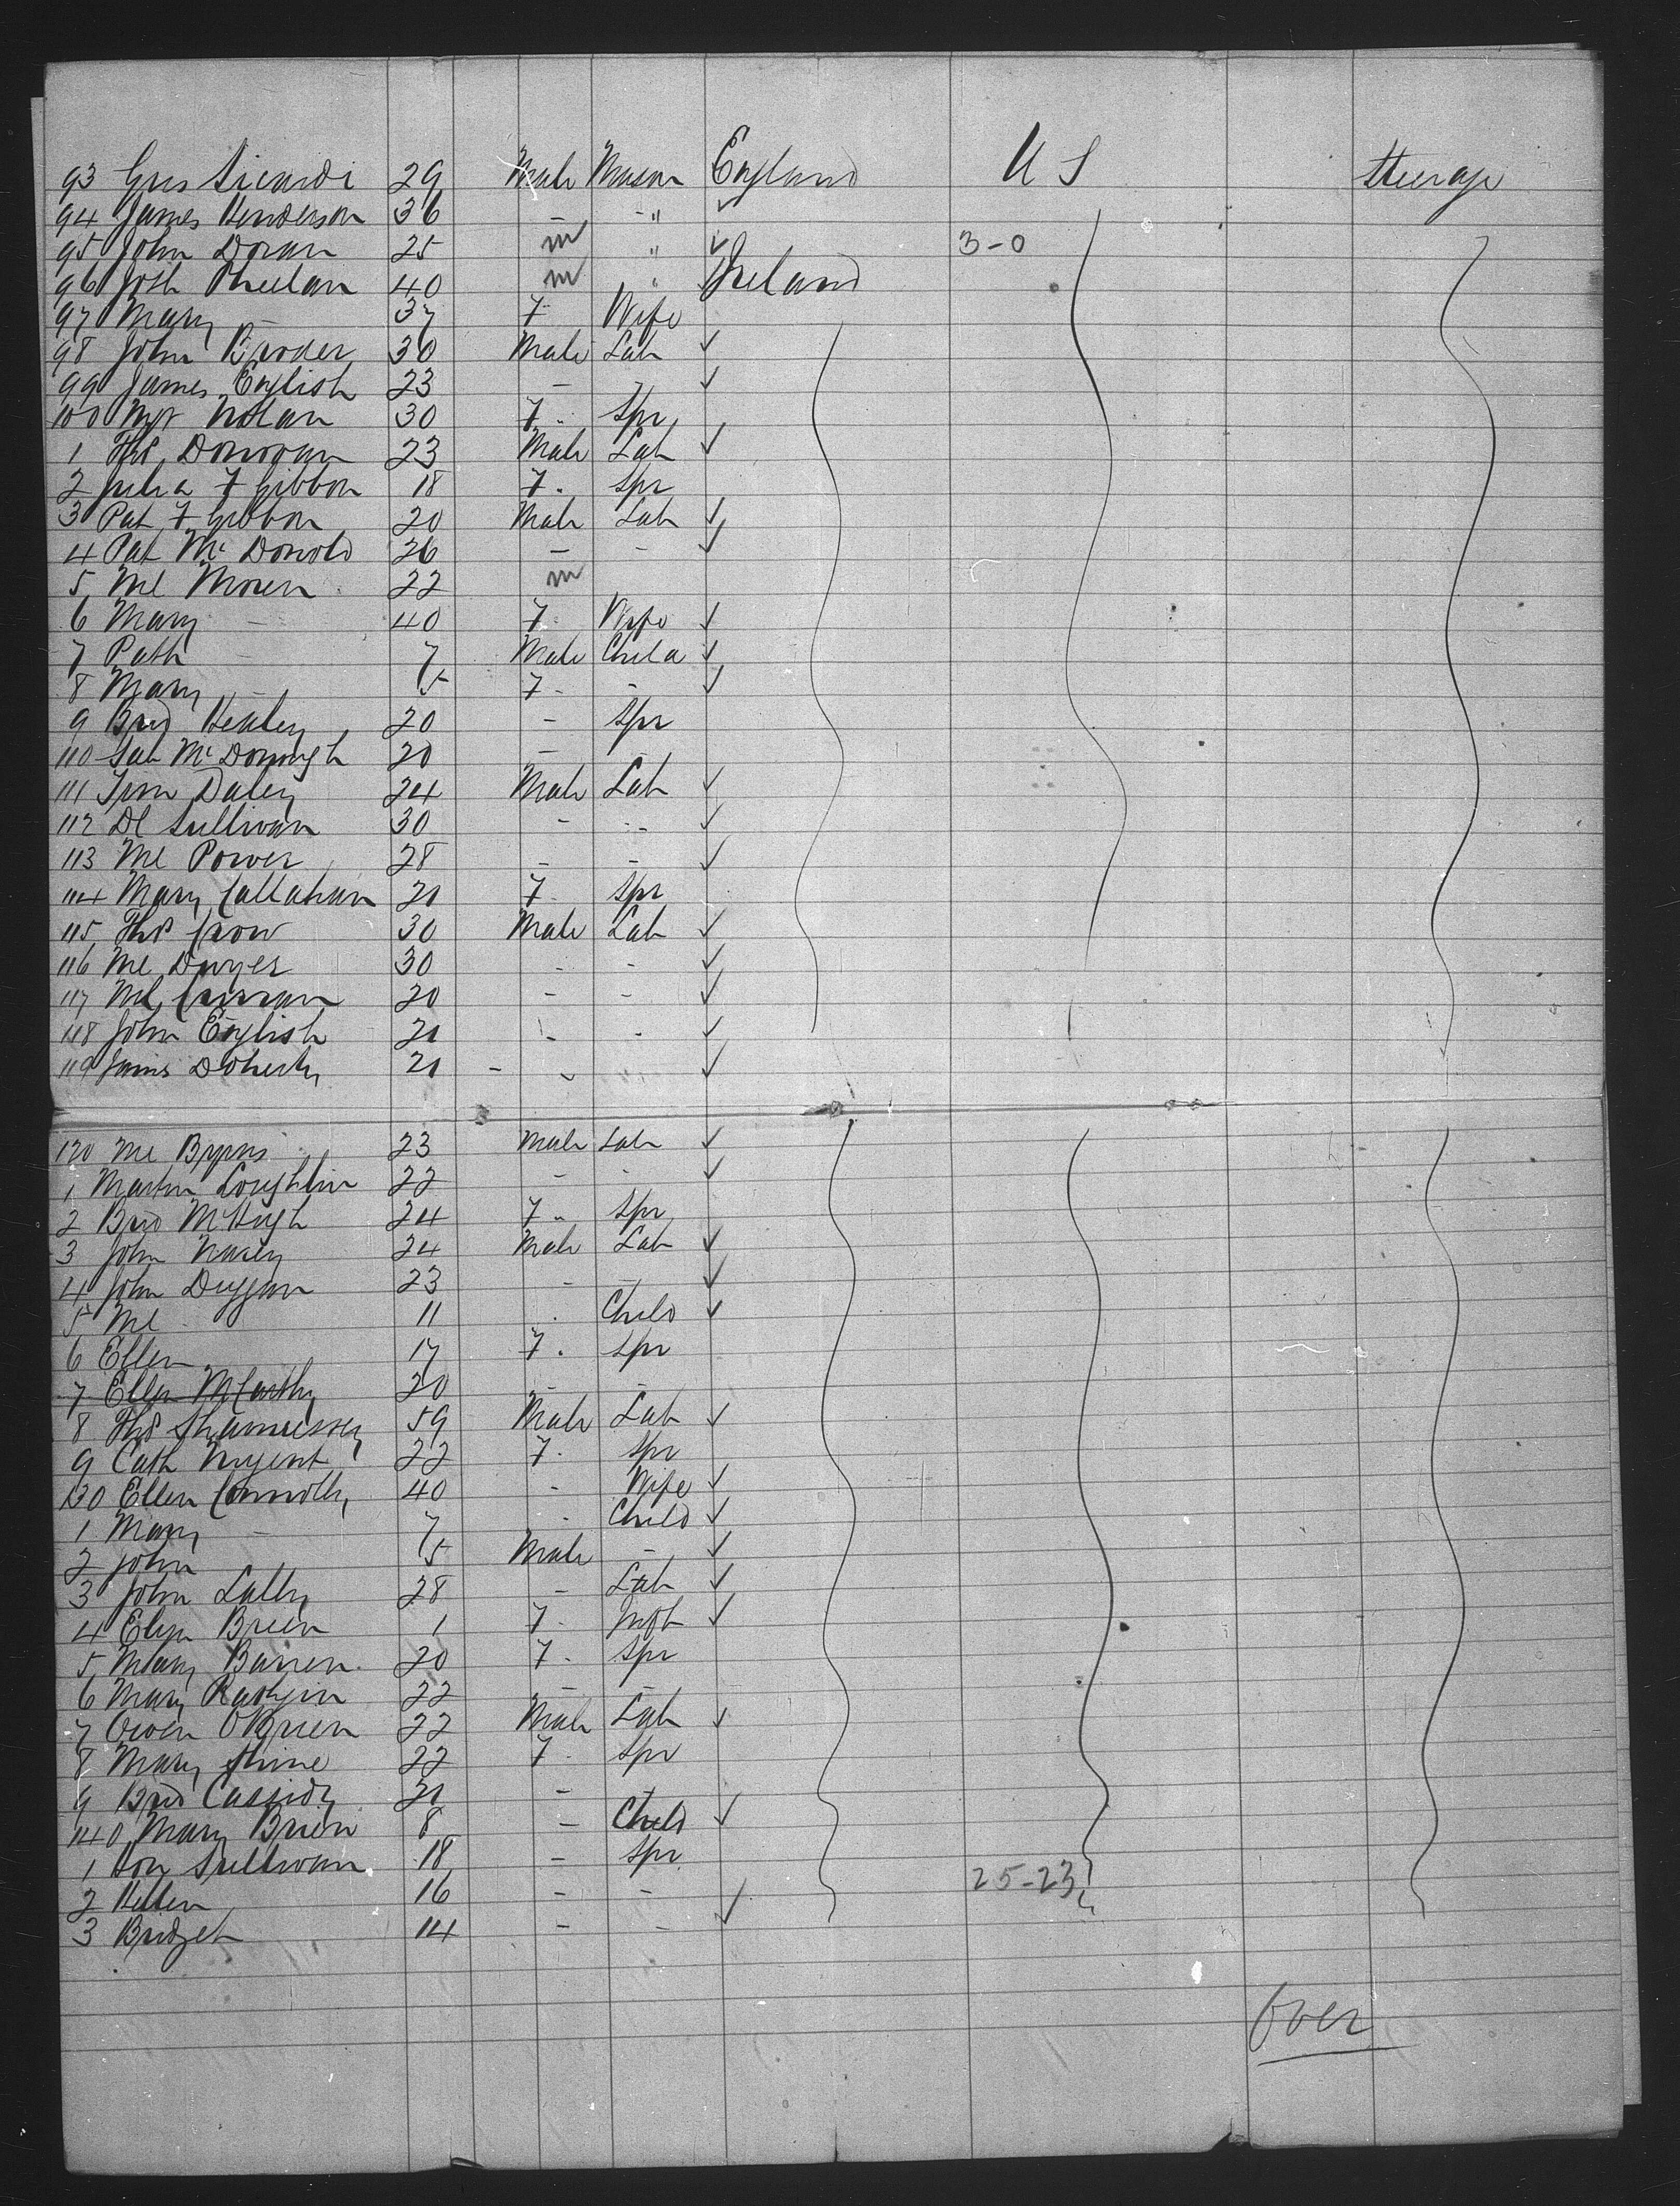 93 Gus Sicardi 29 Male Mason England U S Steerage
94 James Henderson 36 - - "
95 John Doran 25 m " 3-0
96 Josh Pheelan 40 m " Ireland
97 Mary - 37 F Wife
98 John Broder 30 Male Lab
99 James English 23 - -
100 Mgt Nolan 30 F. Spr
1 Ths Donovan 23 Male Lab
2 Julia F Gibbon 18 F. Spr
3 Pat F Gibbon 20 Male Lab
4 Pat McDonold 26 - -
5 Ml 22 m
6 Mary - 40 F. Wife
7 Path - 7 Male Child
8 Mary - 5 F - -
9 Brid Healey 20 - Spr
110 McDonough 20 - -
111 Tim Daley 24 Male Lab
112 Dl Sullivan 30 - --
113 Ml Power 28 - -
114 Mary Callahan 21 F. Spr
115 Ths Crow 30 Male Lab
116 Ml Dwyer 30 - -
117 Ml Curran 20 - -
118 John English 21 - -
119 James Doherty 21 - - "
120 Ml Byrns 23 Male Lab
1 Martin Loughlin 22 - -
2 Brid McHugh 24 F. Spr
3 John 24 Male Lab
4 John Duggan 23 - -
5 Ml - 11 . Child
6 Ellen 17 F. Spr
7 Ellen McCarthy 20 - -
8 Ths Shaunessey 59 Male Lab
9 Cath Nugent 22 F. Spr
130 Ellen Connolly 40 - Wife
1 Mary - 7 - Child
2 John 5 Male -
3 John Lally 28 - Lab
4 Eliza Breen 1 F. Inft
5 Mary Barren 20 F. Spr
6 Mary 22 - -
7 Owen OBrien 22 Male Lab
8 Mary Shine 22 F. Spr
9 Brid Cassidy 21 - -
140 Mary Brien 8 - Child
1 Sullivan 18 - Spr
2 Hellen 16 - - 25-23
3 Bridget 14 - -
Over